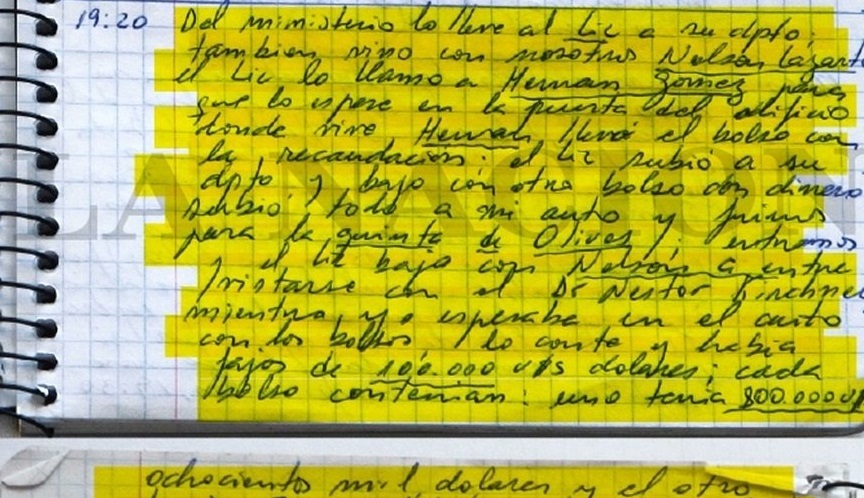 19:20 Del ministerio lo lleve al Lic a su dpto;
tambien vino con nosotros Nelson Lazarte
el Lic lo llamo a Hernan Gomez para
que lo espere en la puerta del edificio
donde vive Hernan llevó el bolso con
la recaudacion; el Lic subió a su
dpto y bajo con otro bolso con dinero
subió todo a mi auto y fuimos
para la quinta de Olivos; entramos
y el Lic bajo con Nelson a entre
vistarse con el Dr Nestor Kirchner
mientras yo esperaba en el auto
con los bolsos lo conte y habia
fajos de 100.000 u$s dolares; cada
bolso contenian: uno tenia 800.000 u$
ochocientos mil dolares y el otro
LA NACION